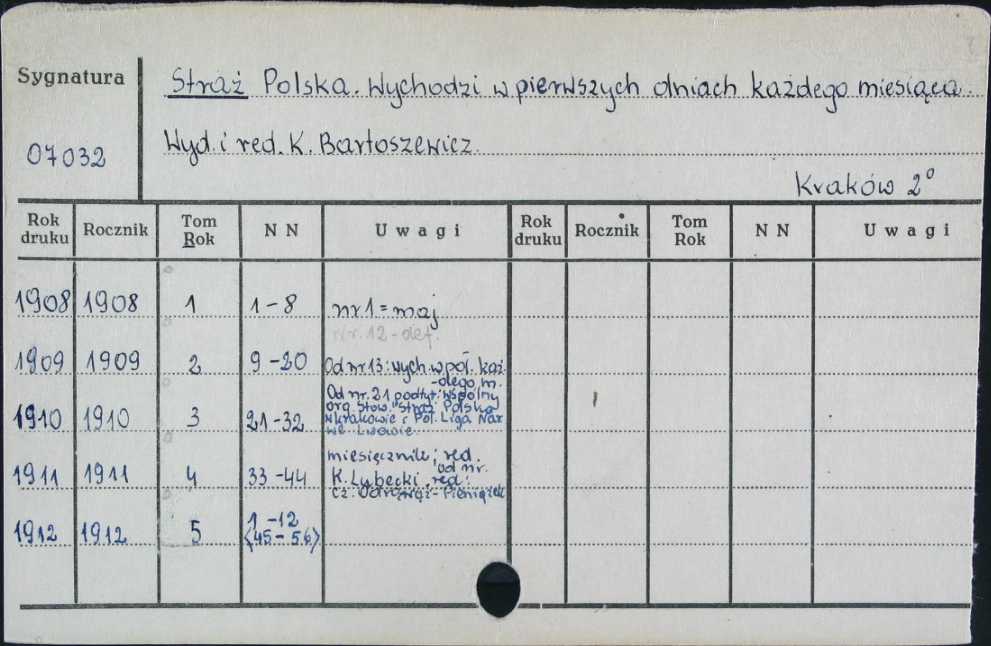 Sygnatura
Straż Polska. Wychodzi w pierwszych dniach każdego miesiąca.
07032
Wyd. i red. K. Bartoszewicz.
Kraków 2°
Rok druku Rocznik Tom Rok N N Uwagi Rok druku Rocznik Tom Rok N N Uwagi
1908 1908 1 1-8 nr 1 = maj
nr. 12 - def.
1909 1909 2 9-20 Od nr 13: wych. w poł. każ-
-dego m.
Od nr. 21 podtyt.: wspólny
org. Stow. "Straż Polska
1910 1910 3 21-32 w Krakowie i Pol. Liga Nar
we Lwowie
miesięcznik; red.
od nr.
1911 1911 4 33-44 K. Lubecki, red.
Cz. Odrowąż-Pieniążek
1912 1912 5 1-12
<45-56>